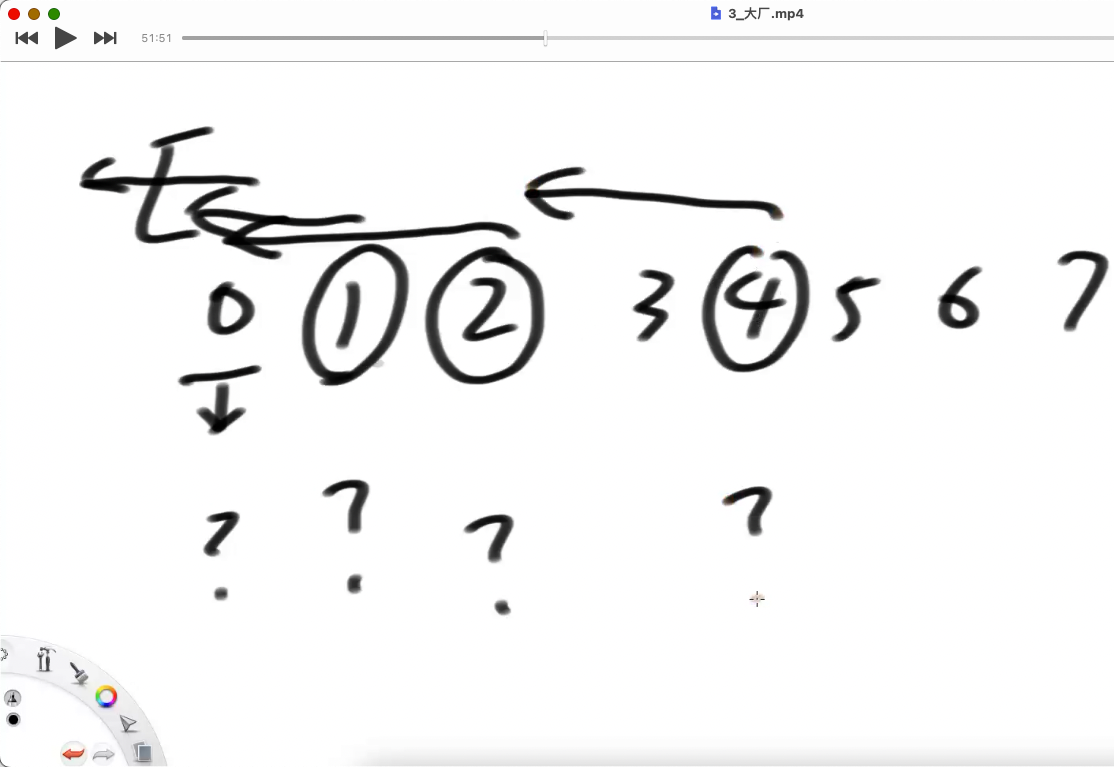 3_大厂.mp4
51:51
0 1 2 3 4 5 6 7
? ? ? ?